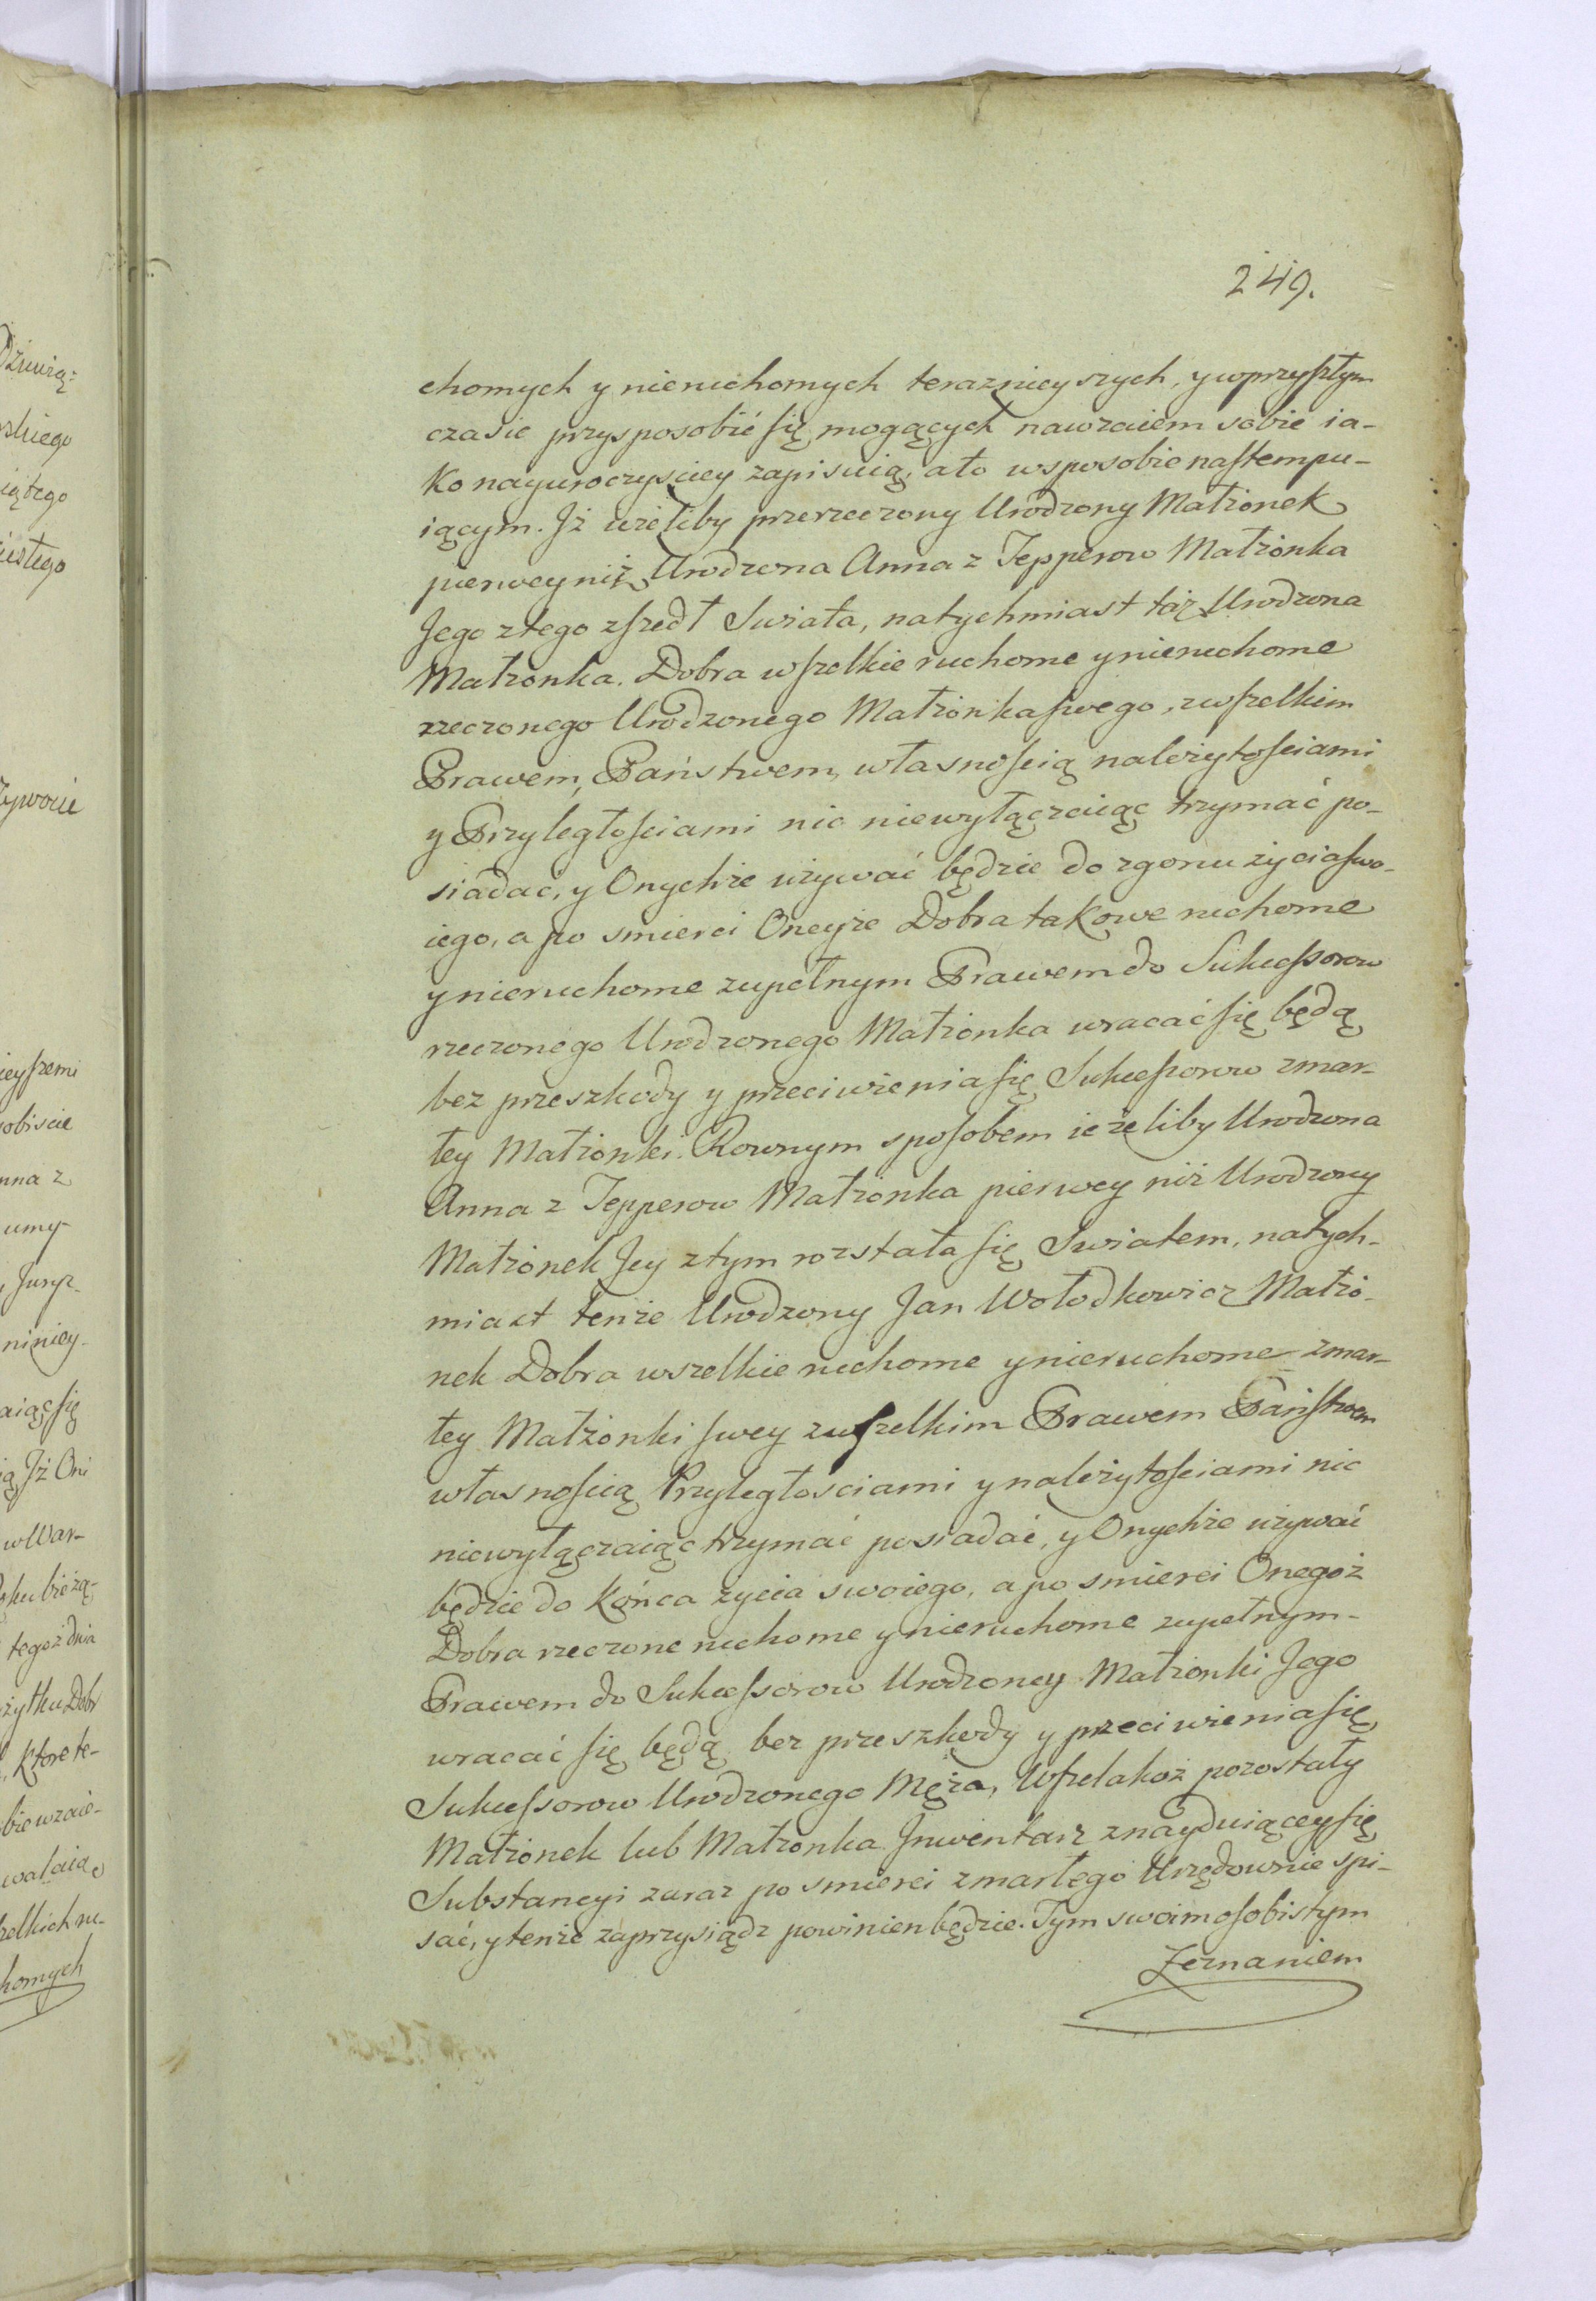 249.
chomych y nieruchomych teraznieyszych, y w przyſzłym
czasie przysposobić ſię mogących nawzaiem sobie ia-
ko nayuroczysciey zapisuią, a to w sposobie naſtempu-
iącym. Jż ieżeliby przerzeczony Urodzony Małżonek
pierwey niż Urodzona Anna z Tepperow Małżonka
Jego z tego zſzedł Swiata, natychmiast taż Urodzona
Małżonka. Dobra wſzelkie ruchome y nieruchome
rzeczonego Urodzonego Małżonka ſwego, z wſzelkim
Prawem, Państwem, własnoſcią należytoſciami
y Przyległoſciami nic niewyłączaiąc trzymać po-
siadac, y Onychże używać będzie do zgonu życia ſwo-
iego, a po smierci Oneyże Dobra takowe ruchome
y nieruchome zupełnym Prawem do Sukceſsorow
rzeczonego Urodzonego Małżonka wracać ſię będą
bez przeszkody y przeciwienia ſię Sukceſsorow zmar-
łey Małżonki. Rownym spoſobem ieżeliby Urodzona
Anna z Tepperow Małżonka pierwey niż Urodzony
Małżonek Jey z tym rozstała ſię Swiatem, natych-
miast tenże Urodzony Jan Wołodkowicz Małżo-
nek Dobra wszelkie ruchome y nieruchome zmar-
łey Małżonki ſwey z wſzelkim Prawem Pańſtwem
własnoſcią Przyległosciami y należytoſciami nic
niewyłączaiąc trzymać posiadać, y Onychże używać
będzie do końca życia swoiego, a po smierci Onegoż
Dobra rzeczone ruchome y nieruchome zupełnym-
Prawem do Sukceſsorow Urodzoney Małżonki Jego
wracać ſię będą bez przeszkody y przeciwienia ſię
Sukceſsorow Urodzonego Męża, Wſzelakoż pozostały
Małżonek lub Małżonka Jnwentarz znayduiącey ſię
Substancyi zaraz po smierci zmarłego Urzędownie spi-
sać, y tenże zaprzysiądz powinien będzie. Tym swoim oſobistym
Zeznaniem